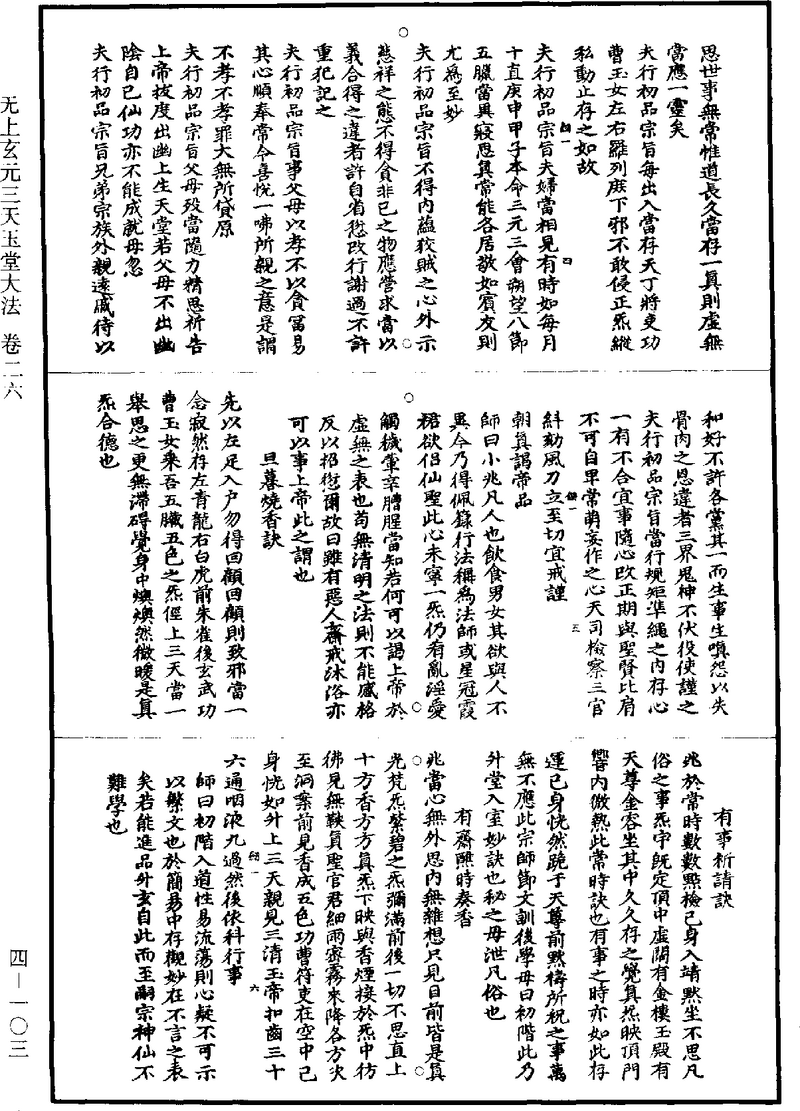 思世事無常惟道長久當存一真則虛無
當應一靈矣
夫行初品宗旨每出入當存天丁將吏功
曹玉女左右羅列庶下邪不敢侵正炁縱
私動止存之如故
夫行初品宗旨夫婦當相見有時如每月
十直庚申甲子本命三元三會朔望八節
五臘當異寢思真常能各居敬如賓友則
尤為至妙
夫行初品宗旨不得內蘊狡賊之心外示
慈祥之態不得貪非已之物應營求當以
義合得之違者許自省愆改行謝過不許
重犯記之
夫行初品宗旨事父母以孝不以貪冨易
其心順奉常令喜悅一咈所親之意是謂
不孝不孝罪大無所貸原
夫行初品宗旨父母歿當隨力精思祈告
上帝拔度出幽上生天堂若父母不出幽
陰自己仙功亦不能成就毋忽
夫行初品宗旨兄弟宗族外親遠戚待以
和好不許各黨其一而生事生嗔怨以失
骨肉之恩違者三界鬼神不伏役使謹之
夫行初品宗旨當行規矩準繩之內存心
一有不合宜事隨心改正期與聖賢比肩
不可自卑常萌妄作之心天司檢察三官
糾劾風刀立至切宜戒謹
朝真謁帝品
師曰小兆凡人也飲食男女其欲與人不
異今乃得佩籙行法稱為法師或星冠霞
裙欲侣仙聖此心未寧一炁仍有亂淫愛
觸穢葷辛膻腥當知若何可以謁上帝於
虛無之表也苟無清明之法則不能感格
反以招愆爾故曰雖有惡人齋戒沐浴亦
可以事上帝此之謂也
旦暮燒香訣
先以左足入户勿得回顧回顧則致邪當一
念寂然存左青龍右白虎前朱雀後玄武功
曹玉女乘吾五臟五色之炁徑上三天當一
舉思之更無滯礙覺身中燠燠然微暖是真
炁合德也
有事祈請訣
兆於常時數數點檢己身入靖默坐不思凡
俗之事炁宇既定頂中虛闊有金樓玉殿有
天尊金容坐其中久久存之覺真炁映頂門
響內微熱此常時訣也有事之時亦如此存
運已身恍然跪于天尊前默禱所祝之事萬
無不應此宗師節文訓後學毋曰初階此乃
外堂入室妙訣也秘之毋泄凡俗也
有齋醮時奏香
兆當心無外思內無雜想只見目前皆是真
光梵炁紫碧之炁彌滿前後一切不思直上
十方香方方真炁下映與香煙接於炁中彷
彿見無鞅真聖官君細雨密霧來降各方次
至洞案前見香成五色功曹符吏在空中己
身恍如外上三天親見三清玉帝扣齒三十
六通咽液九過然後依科行事
師曰初階入道性易流蕩則心疑不可示
以繁文也於簡易中存觀妙在不言之表
矣若能進品升玄自此而至嗣宗神仙不
難學也
无上玄元三天玉堂大法 卷二六
四—一〇三